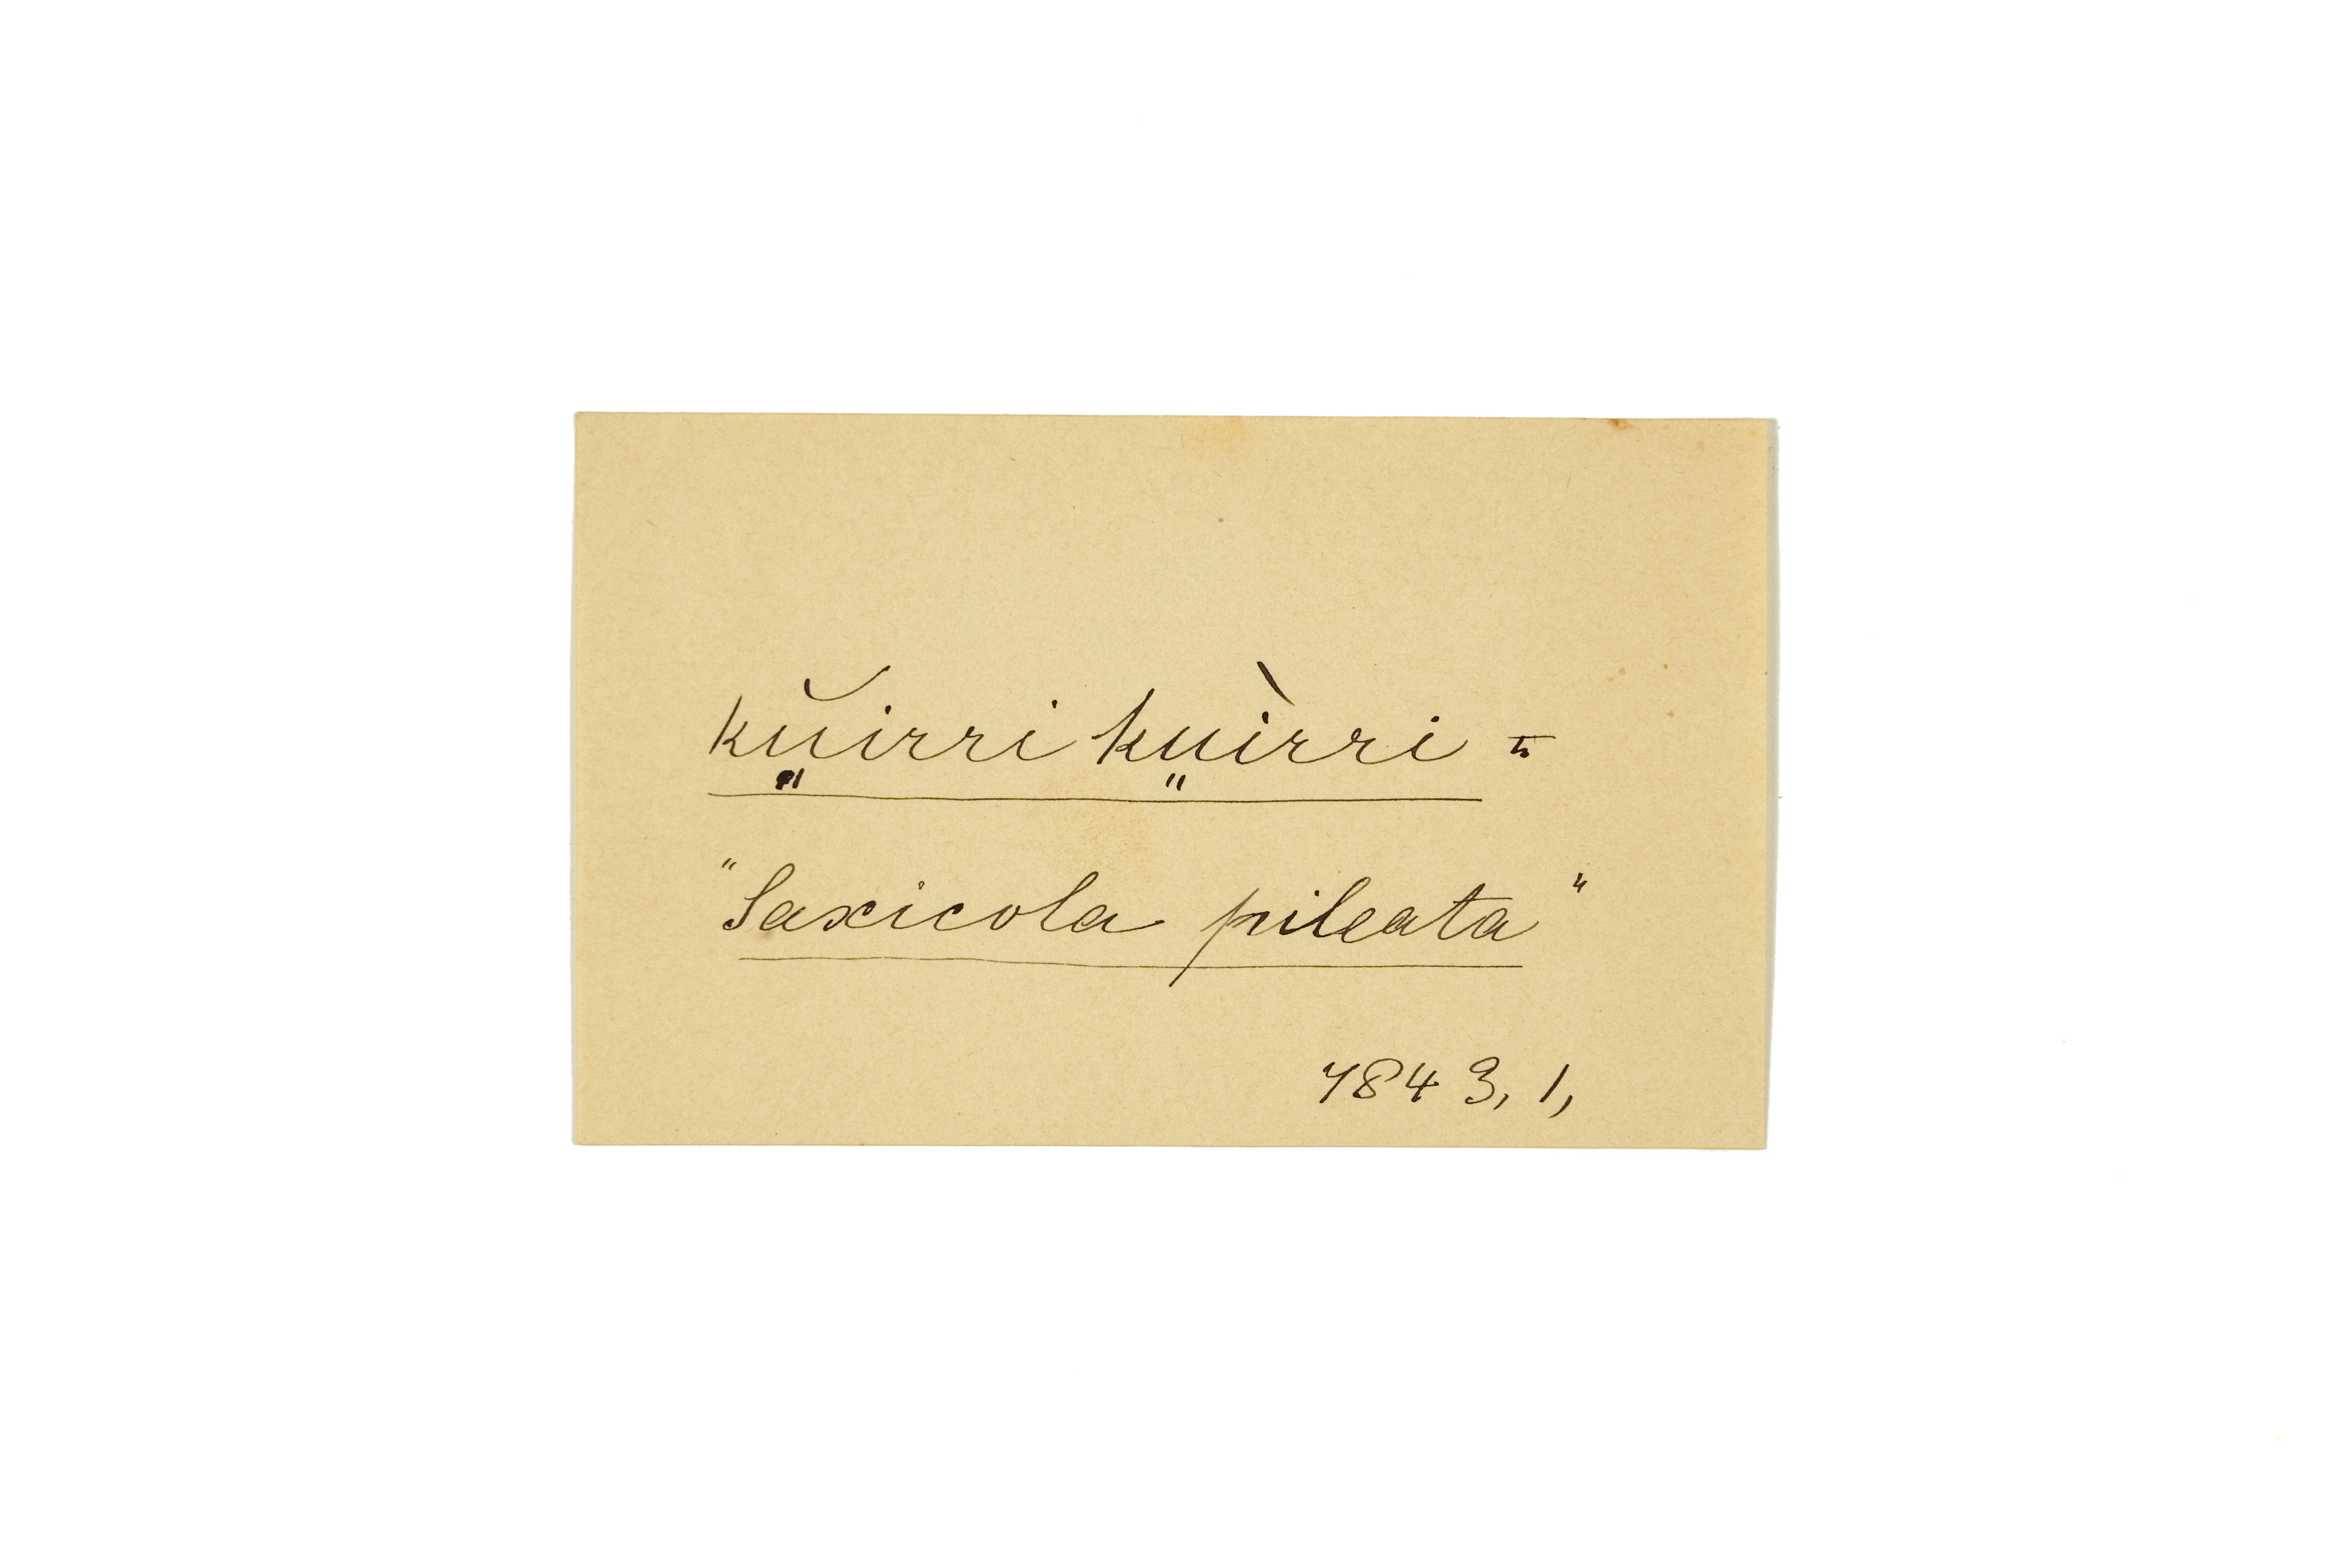 kṳ̆irri kṳìrri =
"Saxicola pileata"
7843, 1,